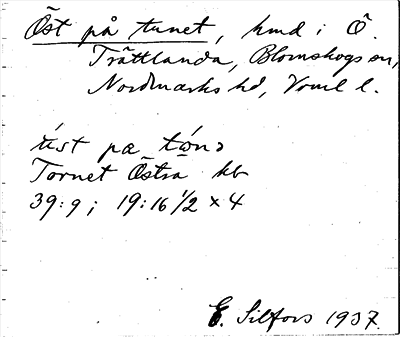 Öst på tunet, hmd i Ö.
Trättlanda, Blomskogs sn,
Nordmarks hd, Vrml l.
úst pœ tǿnə
Tornet Östra kb
39:9; 19:16 1/2 x 4
E. Silfors 1937.